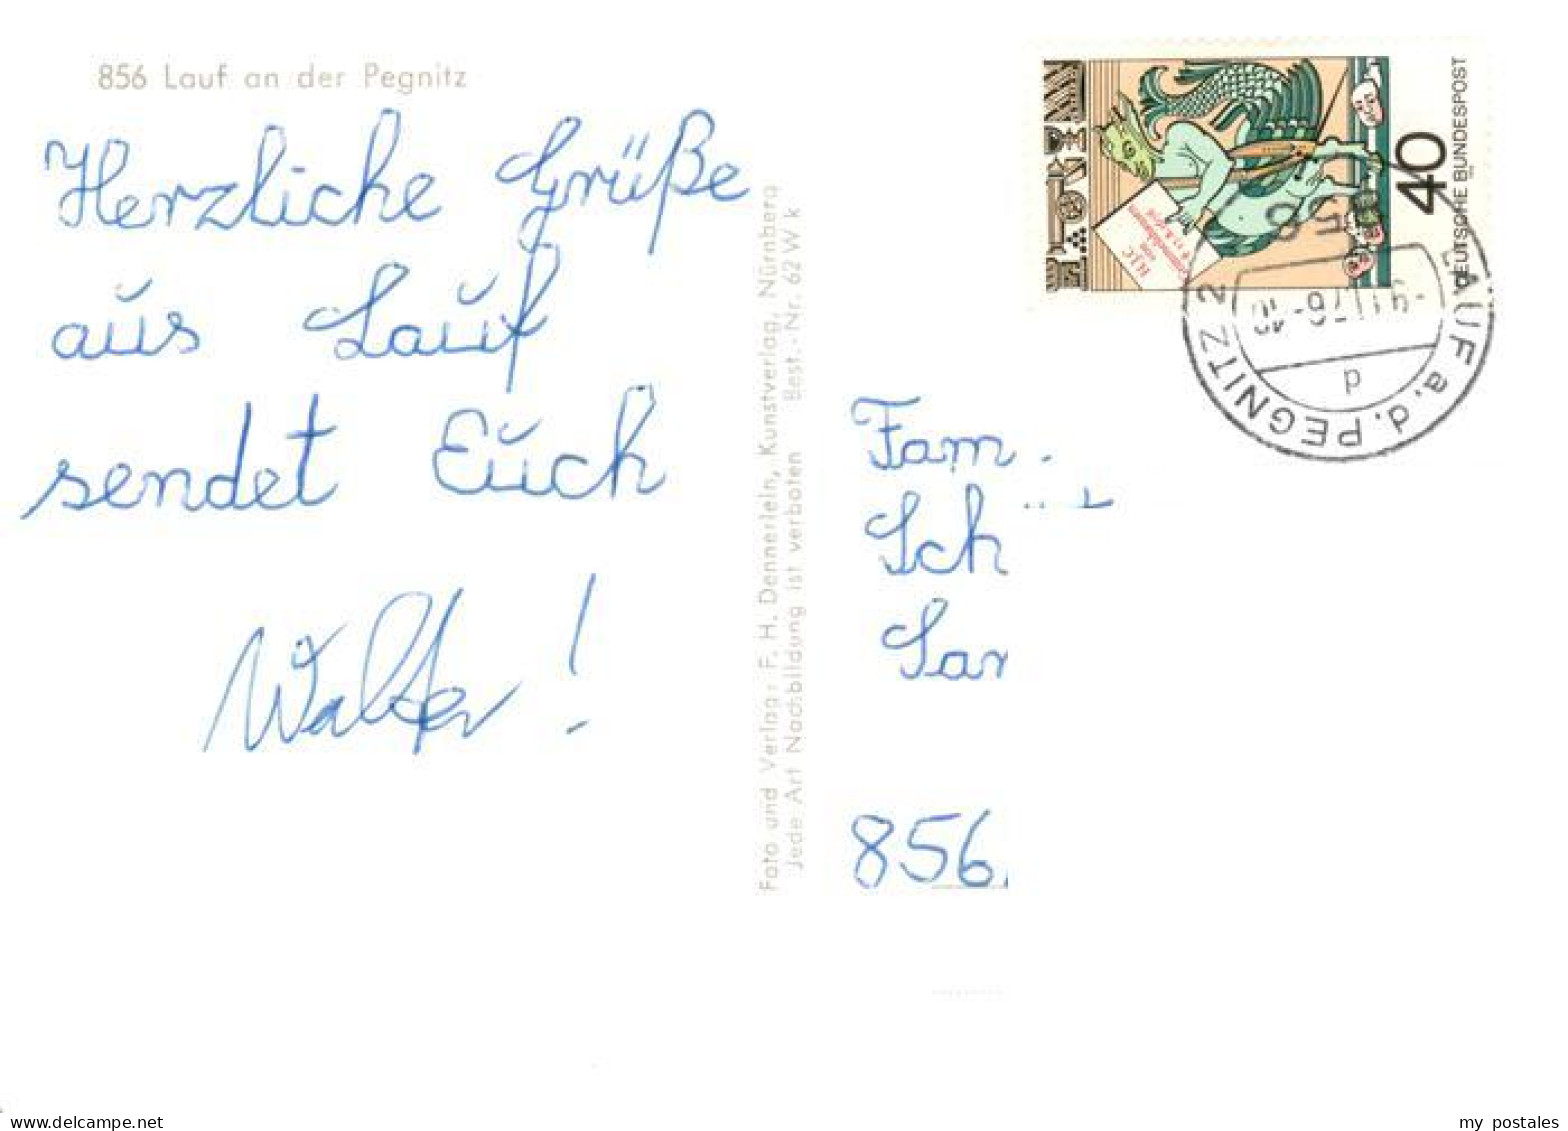 856 Lauf an der Pegnitz
Herzliche Grüße
aus Lauf
sendet Euch
Walter!
Foto und Verlag: F. H. Dennerlein, Kunstverlag, Nürnberg
Jede Art Nachbildung ist verboten Best.-Nr. 62 W k
40
DEUTSCHE BUNDESPOST
LAUF a.d. PEGNITZ 2
p
Fam.
Sch
856.
my postales